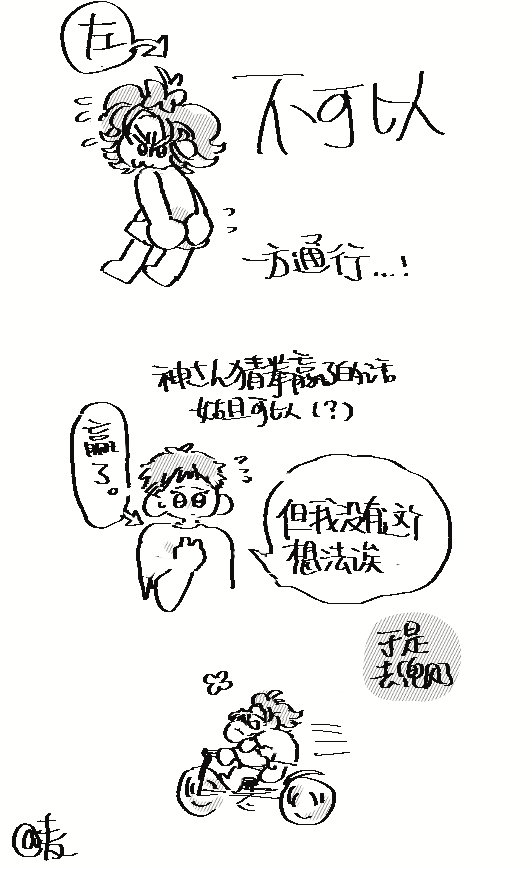 左
不可以
一方通行...!
神さん猜拳赢了的话
姑且可以(?)
赢了。
但我没有这个
想法诶
于是
去兜风